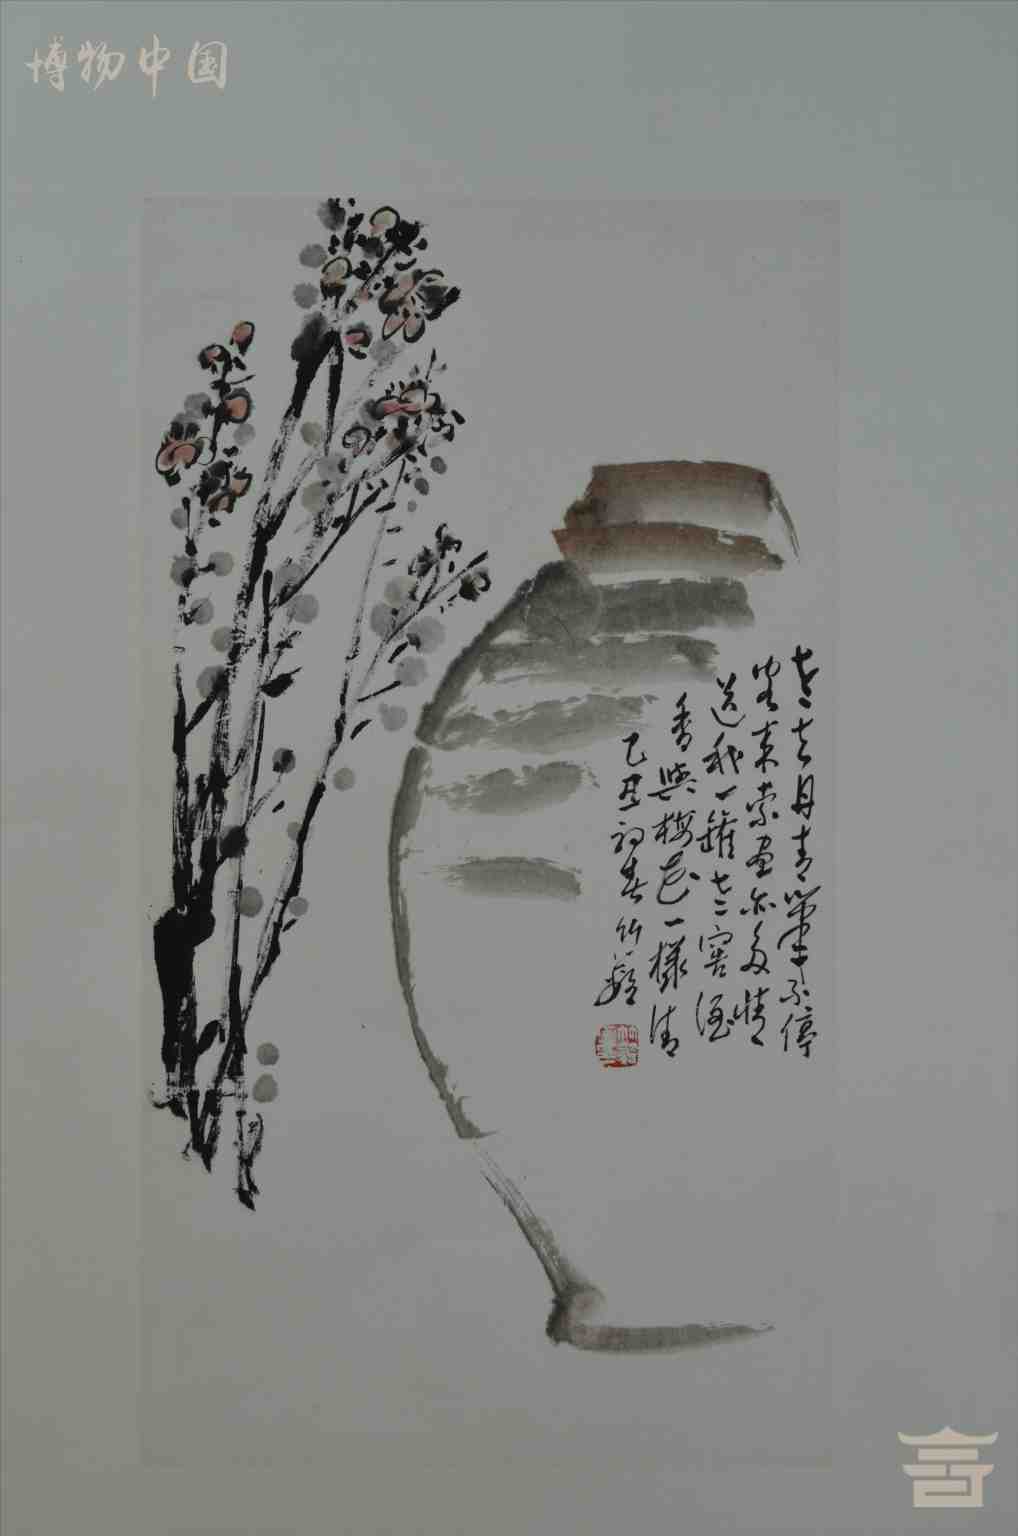 博物中国
老去丹青筆不停
客来索画亦多情
送我一罐老窖酒
香與梅花一樣清
己丑初春竹